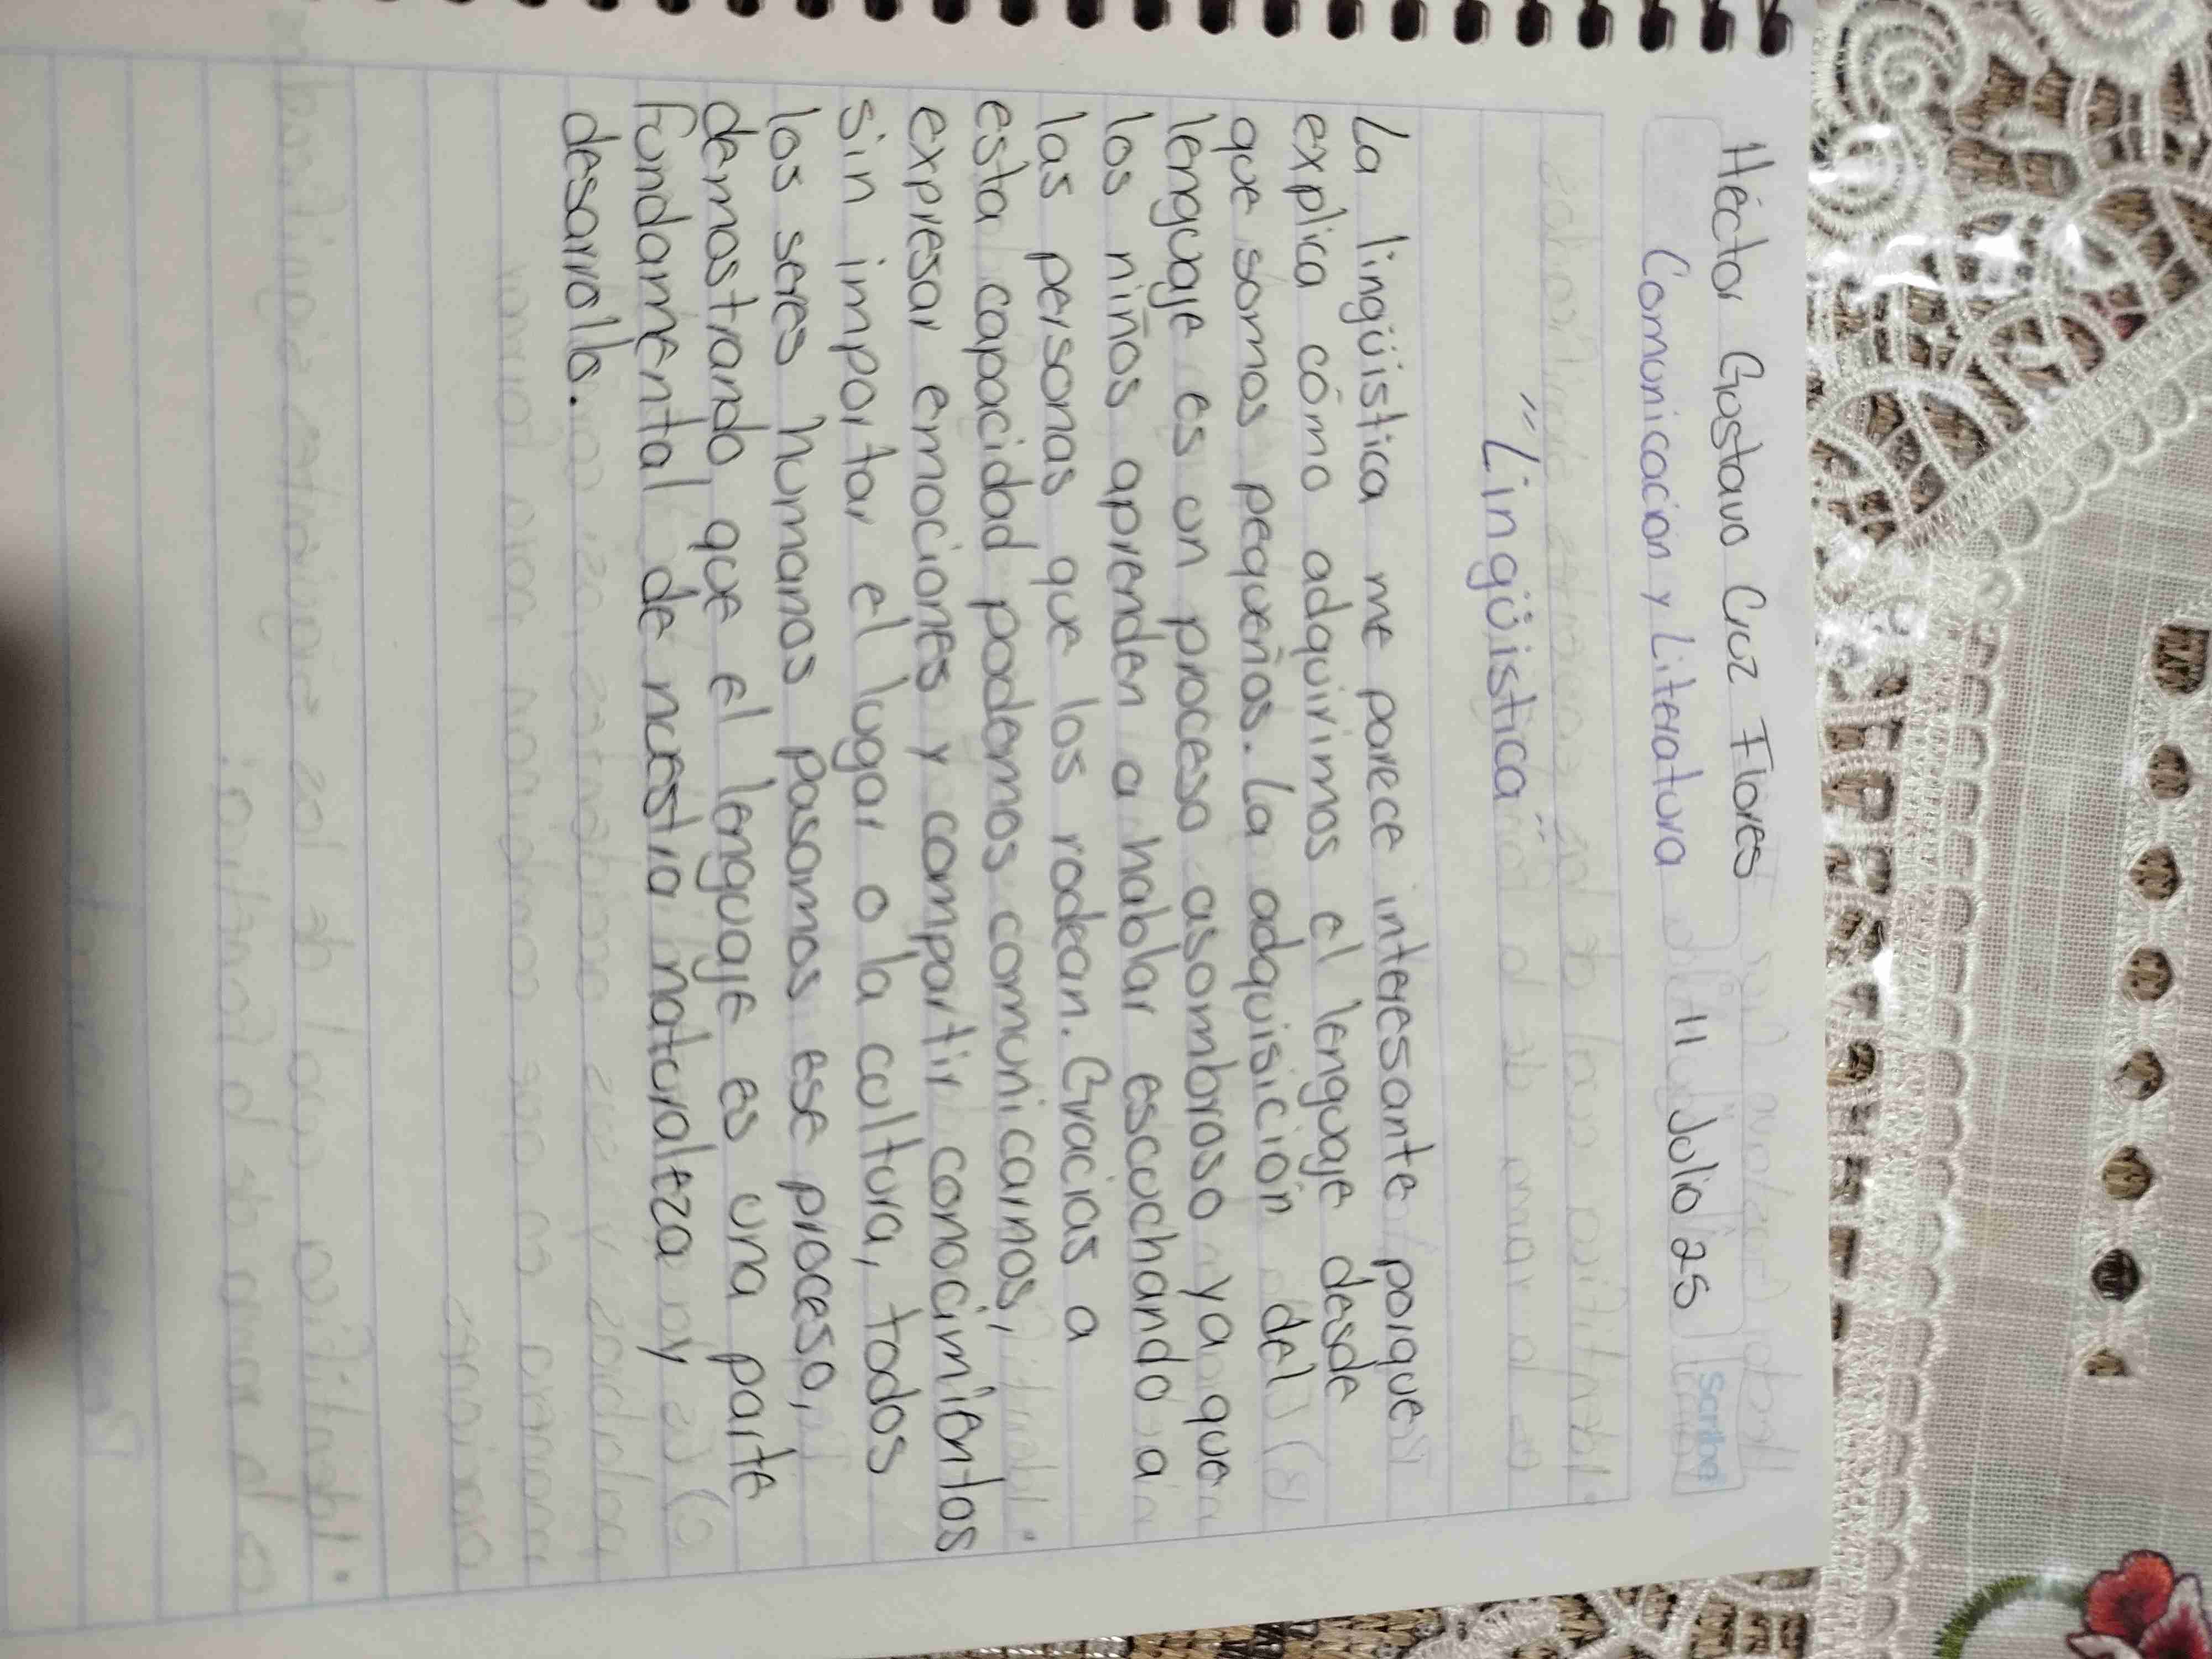 Héctor Gustavo Cruz Flores
Comunicacion y Literatura 11 Julio 25
Scribe
"Lingüistica"
La lingüistica me parece interesante porque
explica cómo adquirimos el lenguaje desde
que somos pequeños. La adquisicion del
lenguaje es un proceso asombroso ya que
los niños aprenden a hablar escuchando a
las personas que los rodean. Gracias a
esta capacidad podemos comunicarnos,
expresar emociones y compartir conocimientos
sin importar el lugar o la cultura, todos
los seres humanos pasamos ese proceso,
demostrando que el lenguaje es una parte
fundamental de nuestra naturaleza y
desarrollo.